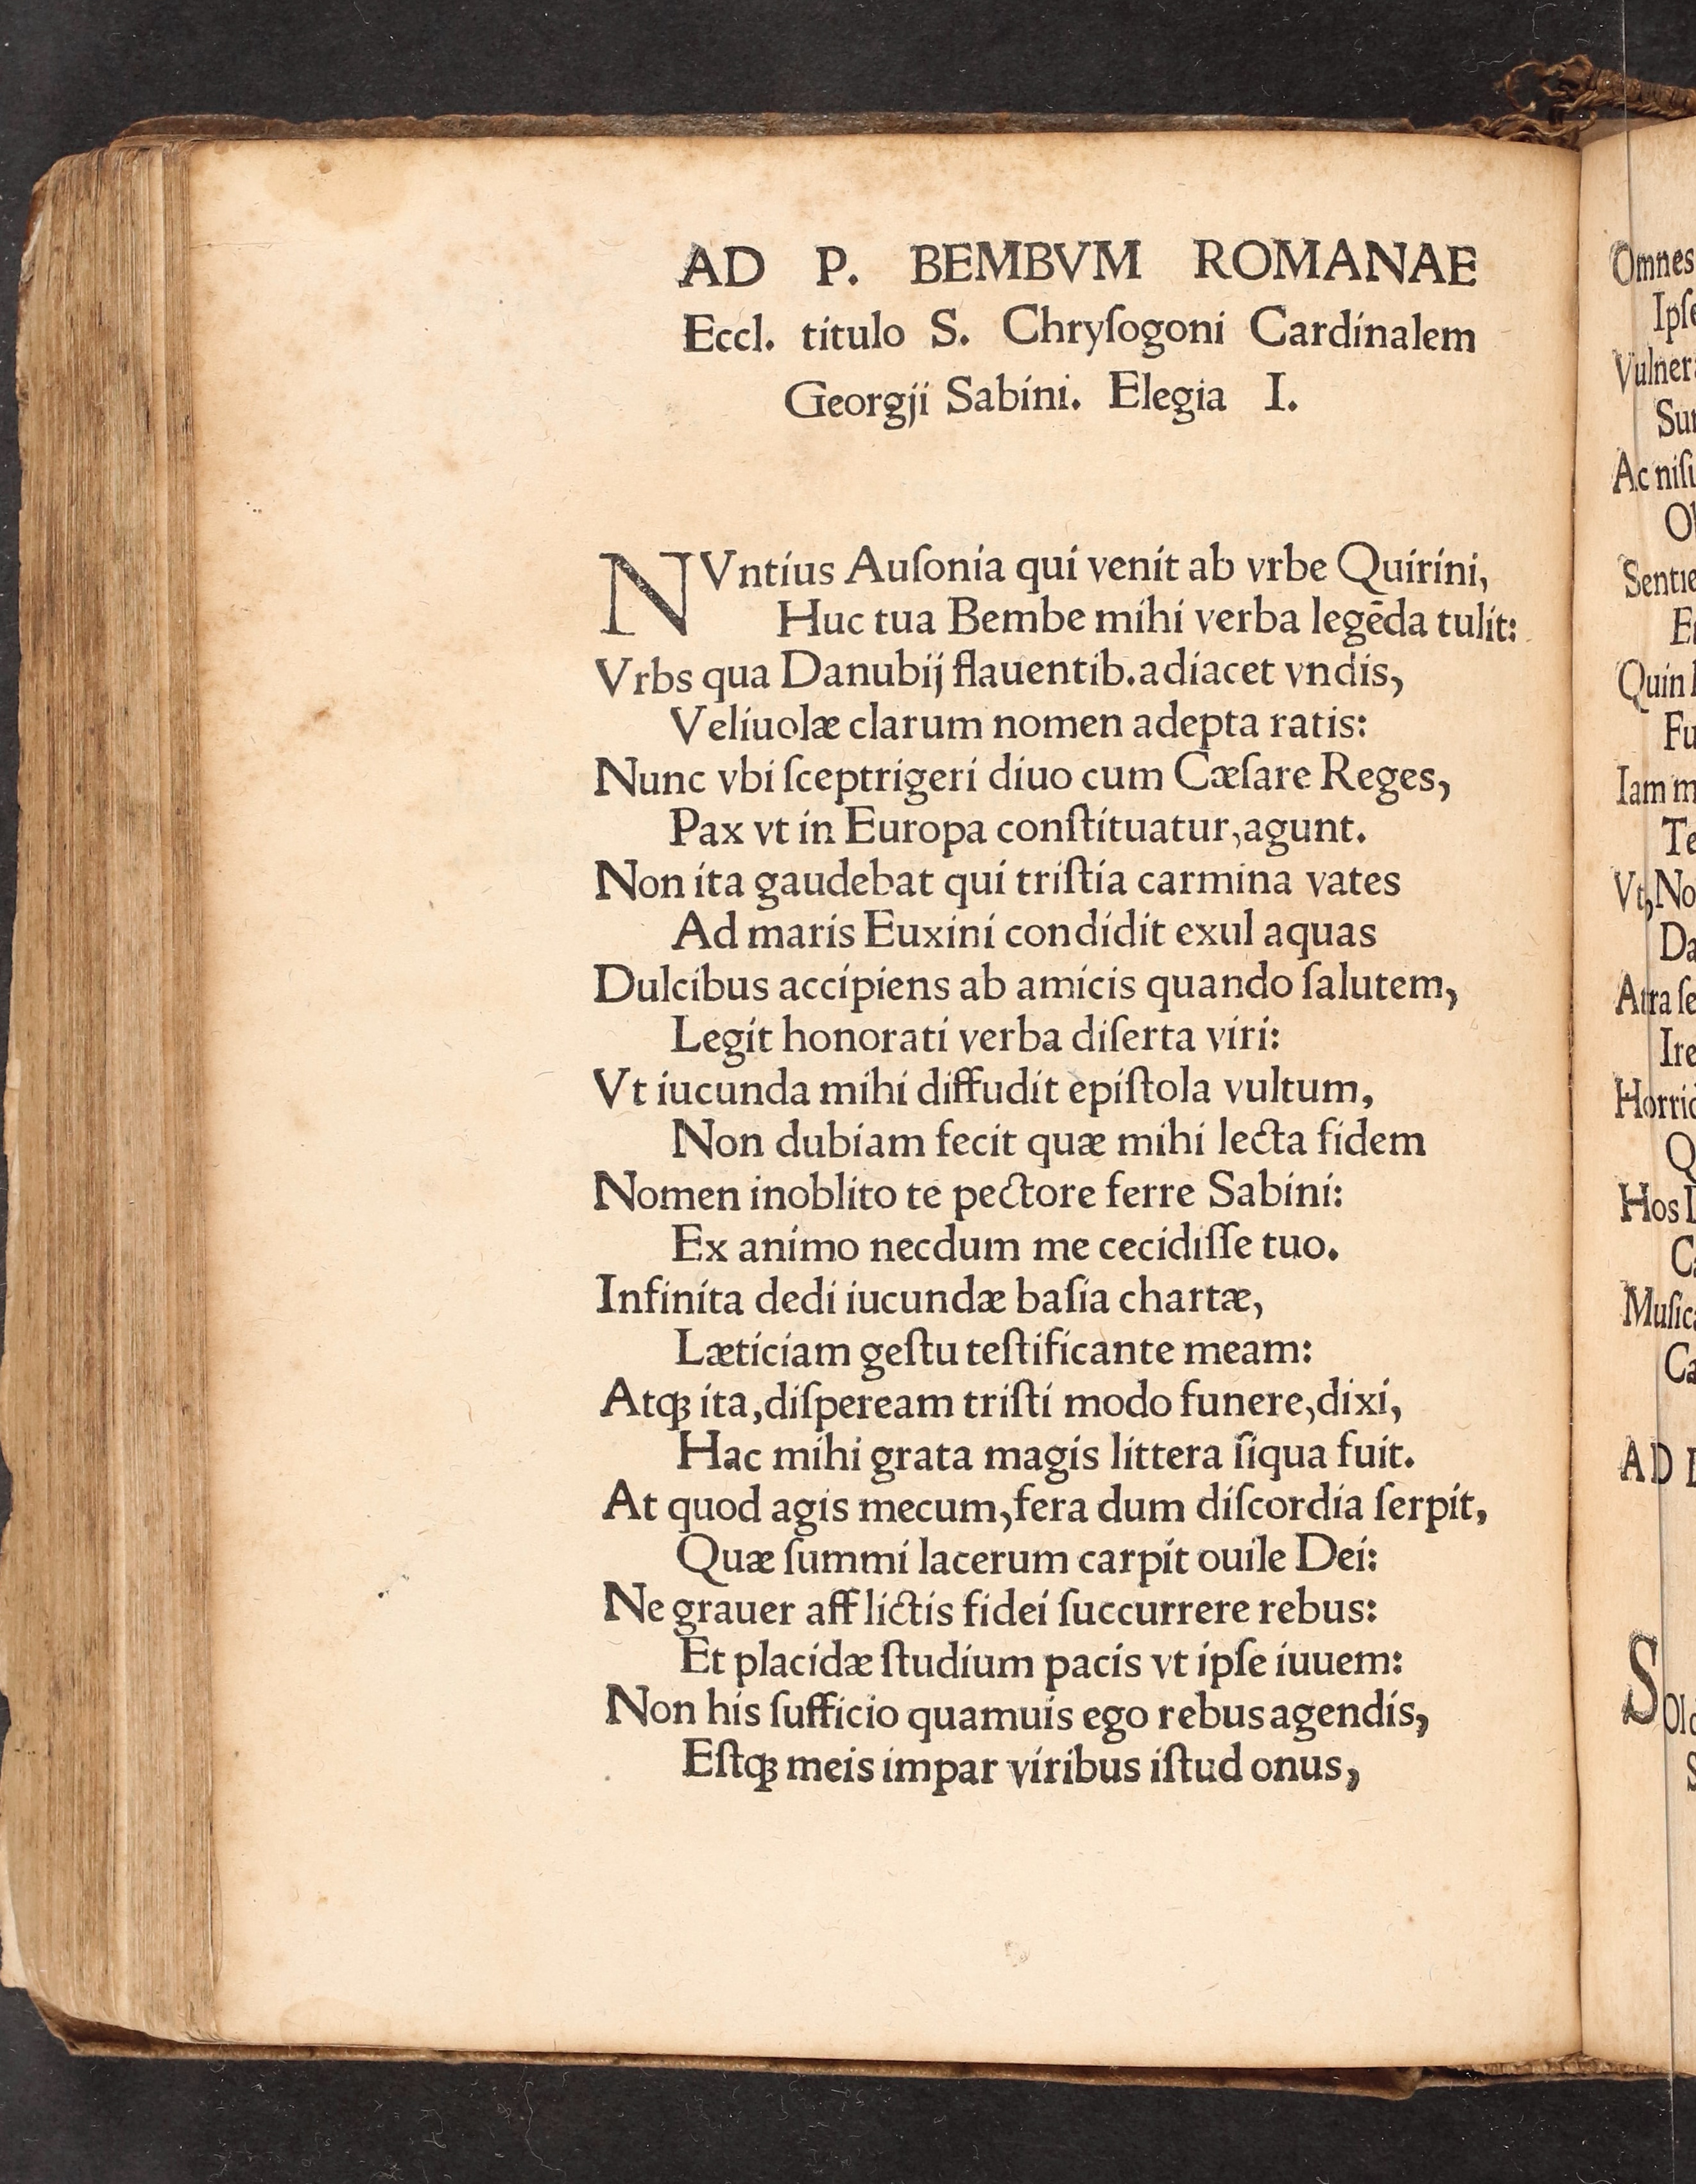 AD P. BEMBVM ROMANAE
Eccl. titulo S. Chryſogoni Cardinalem
Georgji Sabini. Elegia I.
NVntius Auſonia qui venit ab vrbe Quirini,
Huc tua Bembe mihi verba legēda tulit:
Vrbs qua Danubij flauentib. adiacet vndis,
Veliuolæ clarum nomen adepta ratis:
Nunc vbi ſceptrigeri diuo cum Cæſare Reges,
Pax vt in Europa conſtituatur, agunt.
Non ita gaudebat qui triſtia carmina vates
Ad maris Euxini condidit exul aquas
Dulcibus accipiens ab amicis quando ſalutem,
Legit honorati verba diſerta viri:
Vt iucunda mihi diffudit epiſtola vultum,
Non dubiam fecit quæ mihi lecta fidem
Nomen inoblito te pectore ferre Sabini:
Ex animo necdum me cecidiſſe tuo.
Infinita dedi iucundæ baſia chartæ,
Læticiam geſtu teſtificante meam:
Atqꝫ ita, diſpeream triſti modo funere, dixi,
Hac mihi grata magis littera ſiqua fuit.
At quod agis mecum, fera dum diſcordia ſerpit,
Quæ ſummi lacerum carpit ouile Dei:
Ne grauer afflictis fidei ſuccurrere rebus:
Et placidæ ſtudium pacis vt ipſe iuuem:
Non his ſufficio quamuis ego rebus agendis,
Eſtqꝫ meis impar viribus iſtud onus,
Omnes
Ipſe
Sun
Ac niſi
Quin
Fu
Iam m
Te
No
Da
Atra ſe
Ire
Q
Hos
Ca
Ca
AD